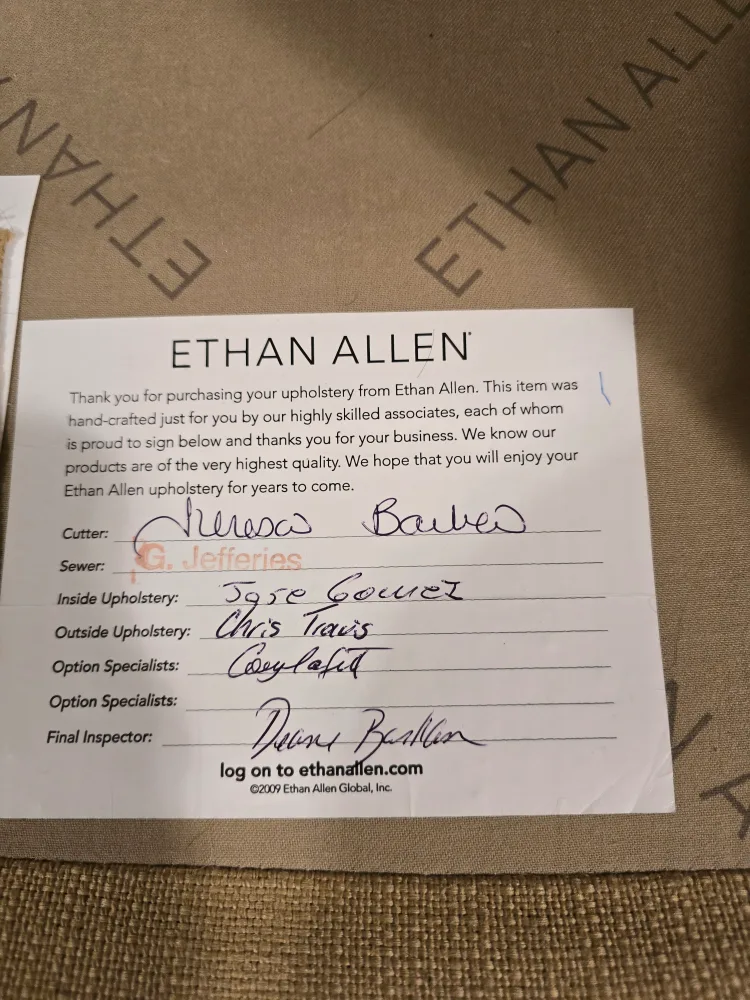 ETHAN
ETHAN ALLEN
ETHAN ALLEN
Thank you for purchasing your upholstery from Ethan Allen. This item was
hand-crafted just for you by our highly skilled associates, each of whom
is proud to sign below and thanks you for your business. We know our
products are of the very highest quality. We hope that you will enjoy your
Ethan Allen upholstery for years to come.
Cutter: Teresa
Sewer: G. Jefferies
Inside Upholstery: Jose Gomez
Outside Upholstery: Chris Travis
Option Specialists:
Option Specialists:
Final Inspector:
log on to ethanallen.com
©2009 Ethan Allen Global, Inc.